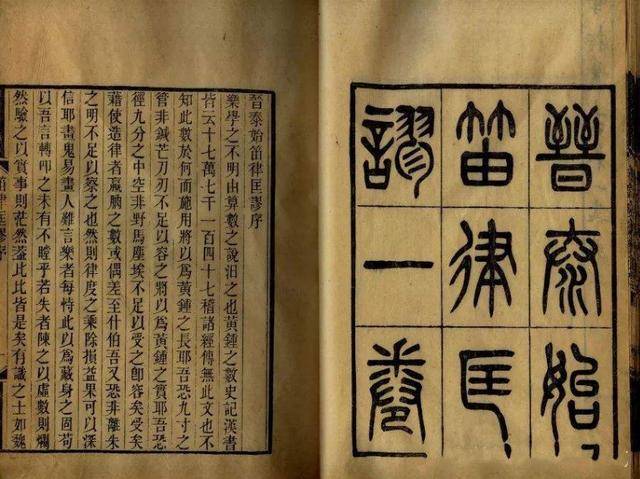 晉泰始
笛律匡
謬一卷
晉泰始笛律匡謬序
樂學之不明由算數之說汨之也黃鍾之數史記漢書
皆云十七萬七千一百四十七稽諸經傳無此文也不
知此數於何而施用將以爲黃鍾之長耶吾恐九寸之
管非鍼芒刀刃不足以容之將以爲黃鍾之實耶吾恐
徑九分之中空非野馬塵埃不足以受之卽容矣受矣
藉使造律者羸朒之數或偶差至什伯吾又恐非離朱
之明不足以察之也然則律度之乘除損益果可以深
信耶畫鬼易畫人難言樂者每恃此以爲藏身之固苟
以吾言轉叩之未有不瞠乎若失者陳之以虛數則爛
然驗之以實事則茫然葢比比皆是矣有識之士如魏
笛律匡謬序